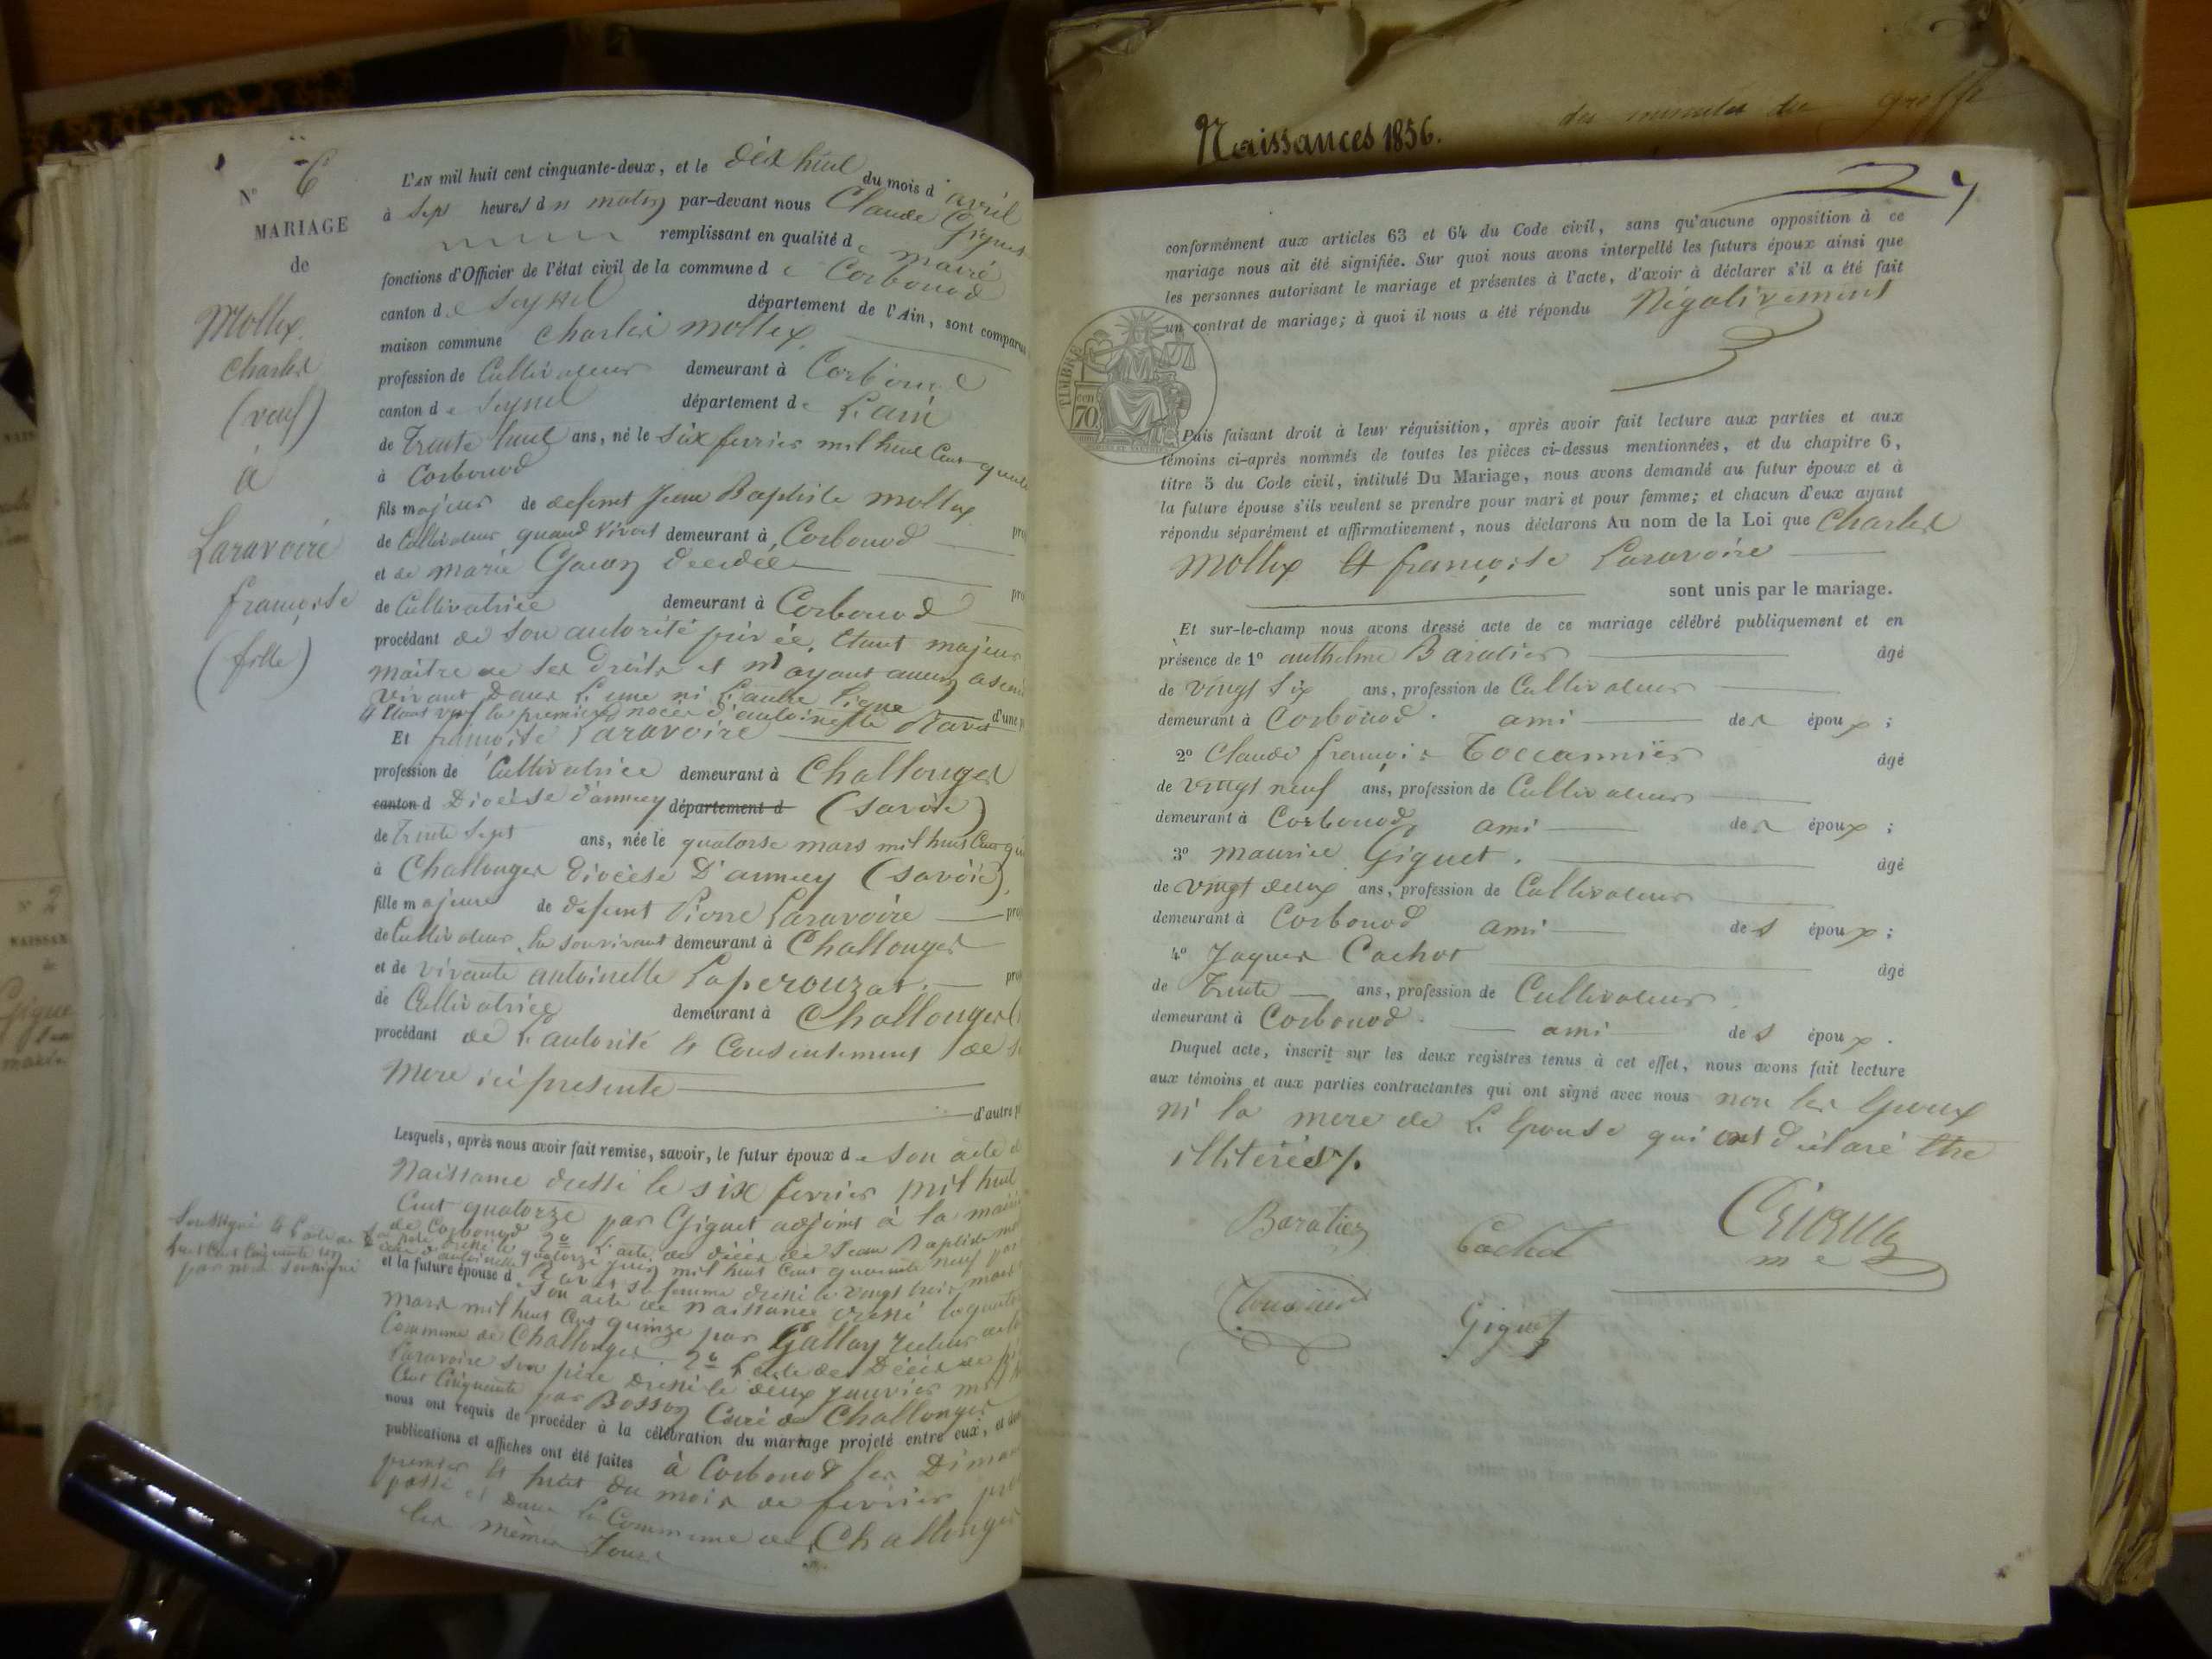 N° 6
MARIAGE
de
Mollex
Charles
(veuf)
à
Laravoire
françoise
(fille)
L'AN mil huit cent cinquante-deux, et le dix huit du mois d'avril
à sept heures du matin par-devant nous Claude Giguet
remplissant en qualité de maire
fonctions d'Officier de l'état civil de la commune de Corbonod
canton de Seyssel département de l'Ain, sont comparus
maison commune Charles mollex
profession de Cultivateur demeurant à Corbonod
canton de Seyssel département de L'ain
de Trente huit ans, né le six fevrier mil huit Cent
à Corbonod
fils majeur de defunt Jean Baptiste mollex
de Cultivateur quand vivait demeurant à Corbonod
et de marie décédée
de Cultivatrice demeurant à Corbonod
procédant de son autorité privée, Etant majeur
maitre de ses droits et n'ayant aucun
vivant dans L'une ni L'autre ligne
Et Etant veuf en premieres noces d'antoinette Ravat d'une
Et françoise Laravoire
profession de Cultivatrice demeurant à Challonges
canton d Diocèse d'annecy département d (Savoie)
de Trente Sept ans, née le quatorse mars mil huit Cent
à Challonges Diocèse D'annecy (Savoie)
fille majeure de defunt Pierre Laravoire
de Cultivateur Lu souvivant demeurant à Challonges
et de vivante antoinette Laperouzat
de Cultivatrice demeurant à Challonges
procédant de L'autorité Et Consentement de
Mere ici presente
d'autre
Lesquels, après nous avoir fait remise, savoir, le futur époux de son acte
Naissance dressé le six fevrier mil huit
Cent quatorze par Giguet adjoint à la mairie
de Corbonod 2° L'acte de décès de Jean Baptiste
mil huit Cent quarante neuf
et la future épouse d Ravat sa femme dressé le vingt trois mars
son acte de naissance dressé le quatorze
mars mil huit Cent quinze par Gallay recteur
Commune de Challonges. 2° L'acte de Décès de
Laravoire son père Dressé le deux janvier mil
Cent Cinquante par Bosson Curé de Challonges
nous ont requis de procéder à la célébration du mariage projeté entre eux, et dont
publications et affiches ont été faites à Corbonod les
premier Et huit du mois de fevrier
passé et Dans La Commune de Challonges
les mêmes Jours
Soussigné Et L'acte de
huit Cent Cinquante un
par nous soussigné
Naissances 1856.
des minutes du greffe
7
conformément aux articles 63 et 64 du Code civil, sans qu'aucune opposition à ce
mariage nous ait été signifiée. Sur quoi nous avons interpellé les futurs époux ainsi que
les personnes autorisant le mariage et présentes à l'acte, d'avoir à déclarer s'il a été fait
un contrat de mariage; à quoi il nous a été répondu Négativement
TIMBRE
70 cen
Puis faisant droit à leur réquisition, après avoir fait lecture aux parties et aux
témoins ci-après nommés de toutes les pièces ci-dessus mentionnées, et du chapitre 6,
titre 5 du Code civil, intitulé Du Mariage, nous avons demandé au futur époux et à
la future épouse s'ils veulent se prendre pour mari et pour femme; et chacun d'eux ayant
répondu séparément et affirmativement, nous déclarons Au nom de la Loi que Charles
Mollex Et françoise Laravoire
sont unis par le mariage.
Et sur-le-champ nous avons dressé acte de ce mariage célébré publiquement et en
présence de 1° anthelme Baratier âgé
de vingt six ans, profession de Cultivateur
demeurant à Corbonod. ami des époux;
2° Claude françois Toccannier âgé
de vingt neuf ans, profession de Cultivateur
demeurant à Corbonod, ami des époux;
3° maurice Giguet. âgé
de vingt deux ans, profession de Cultivateur
demeurant à Corbonod ami des époux;
4° Jaques Cachot âgé
de Trente ans, profession de Cultivateur
demeurant à Corbonod. ami des époux.
Duquel acte, inscrit sur les deux registres tenus à cet effet, nous avons fait lecture
aux témoins et aux parties contractantes qui ont signé avec nous non les Epoux
ni la mere de L'Epouse qui ont déclaré Etre
illitérés/.
Baratier Cachot Giguet
me
Giguet